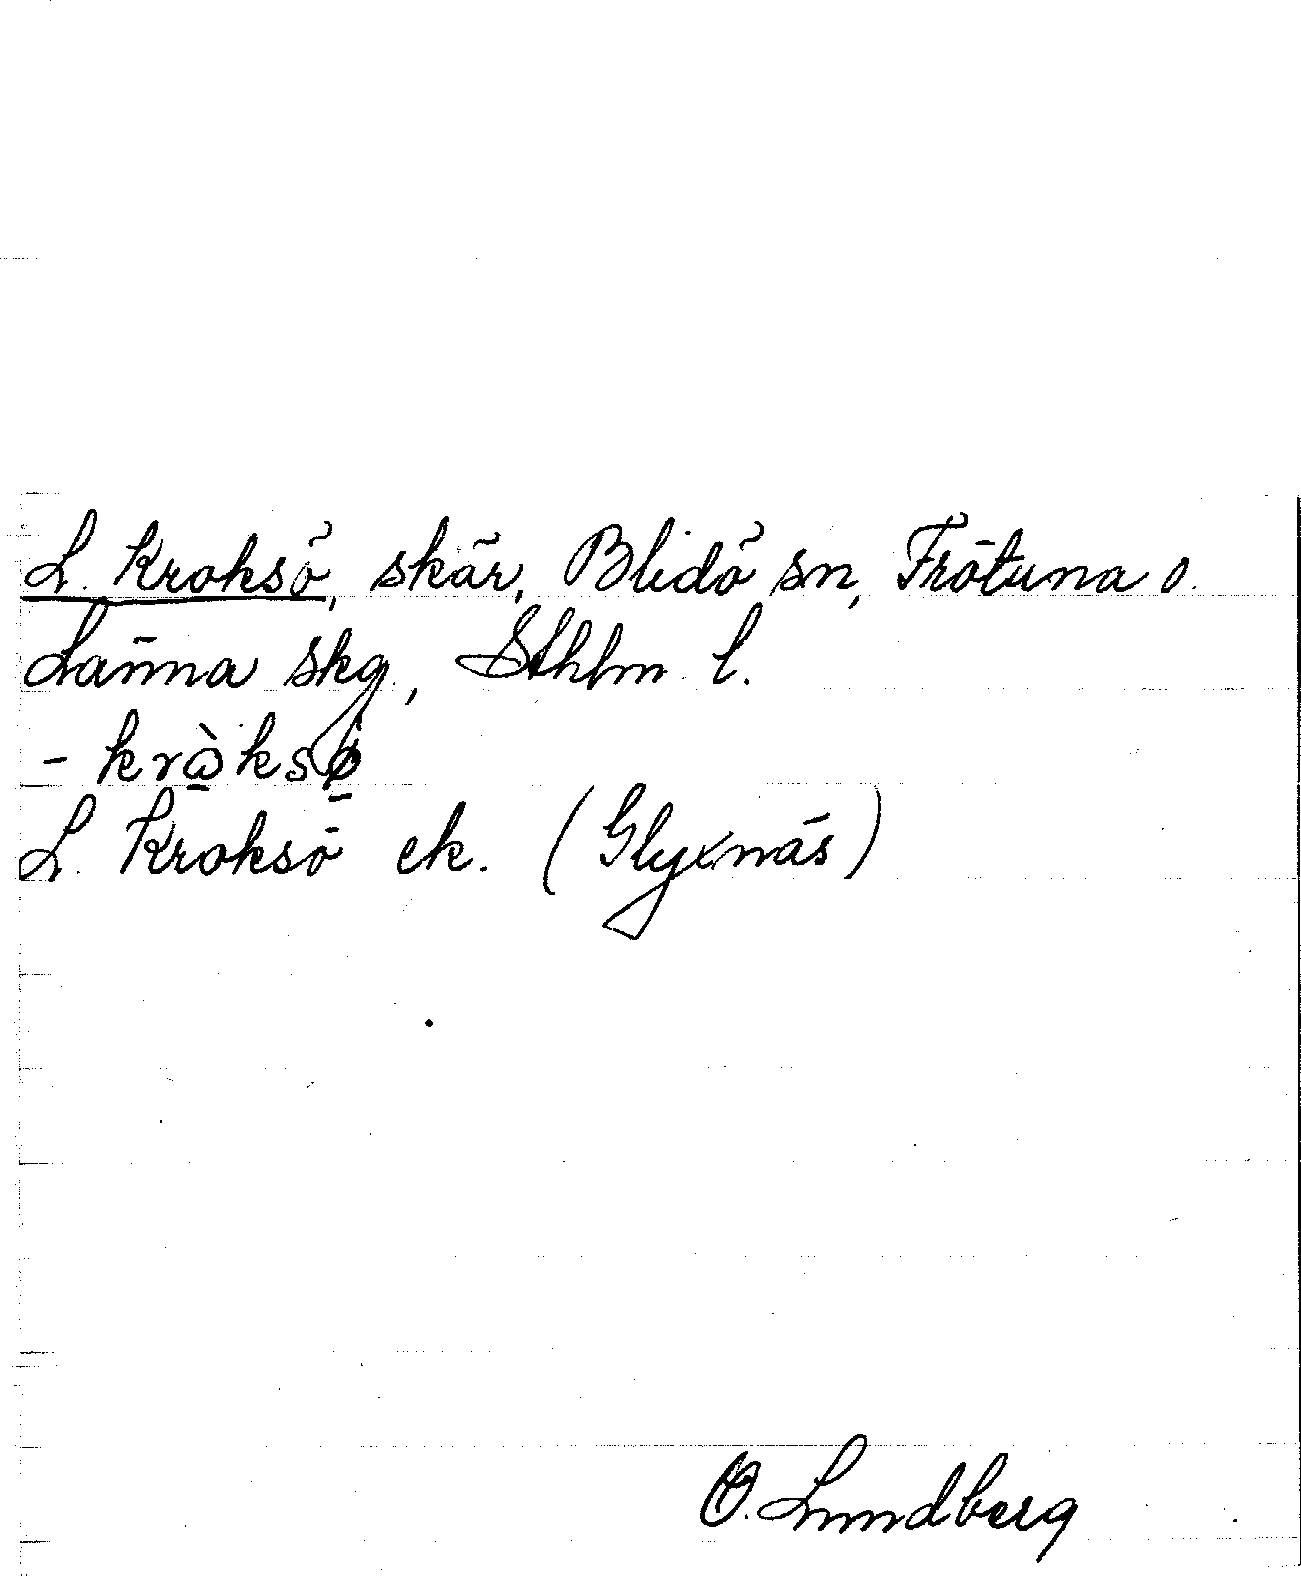 L. Kroksö, skär, Blidö sn, Frötuna o.
Länna skg, Sthlm l.
L. Kroksö ek. (Glyxnäs)
O. Lundberg